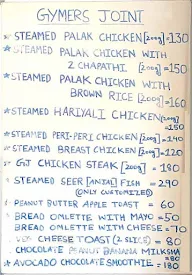 GYMERS JOINT
* STEAMED PALAK CHICKEN [200g] = 130
* STEAMED PALAK CHICKEN WITH
2 CHAPATHI [200g] = 150
* STEAMED PALAK CHICKEN WITH
BROWN RICE [200g] = 160
* STEAMED HARIYALI CHICKEN [200g]
= 150
* STEAMED PERI-PERI CHICKEN [200g] = 140
* STEAMED BREAST CHICKEN [200g] = 120
CHICKEN STEAK [200g] = 180
STEAMED SEER [ANJAL] FISH = 290
(ONLY CUSTOMIZED)
PEANUT BUTTER APPLE TOAST = 60
BREAD OMLETTE WITH MAYO = 50
BREAD OMLETTE WITH CHEESE = 70
CHEESE TOAST (2 SLICE) = 80
CHOCOLATE PEANUT BANANA MILKSHA
= 80
* AVOCADO CHOCOLATE SMOOTHIE = 180